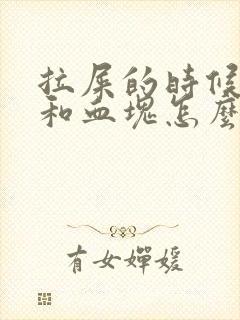 拉屎的時候
和血塊怎麼
有女嬋媛